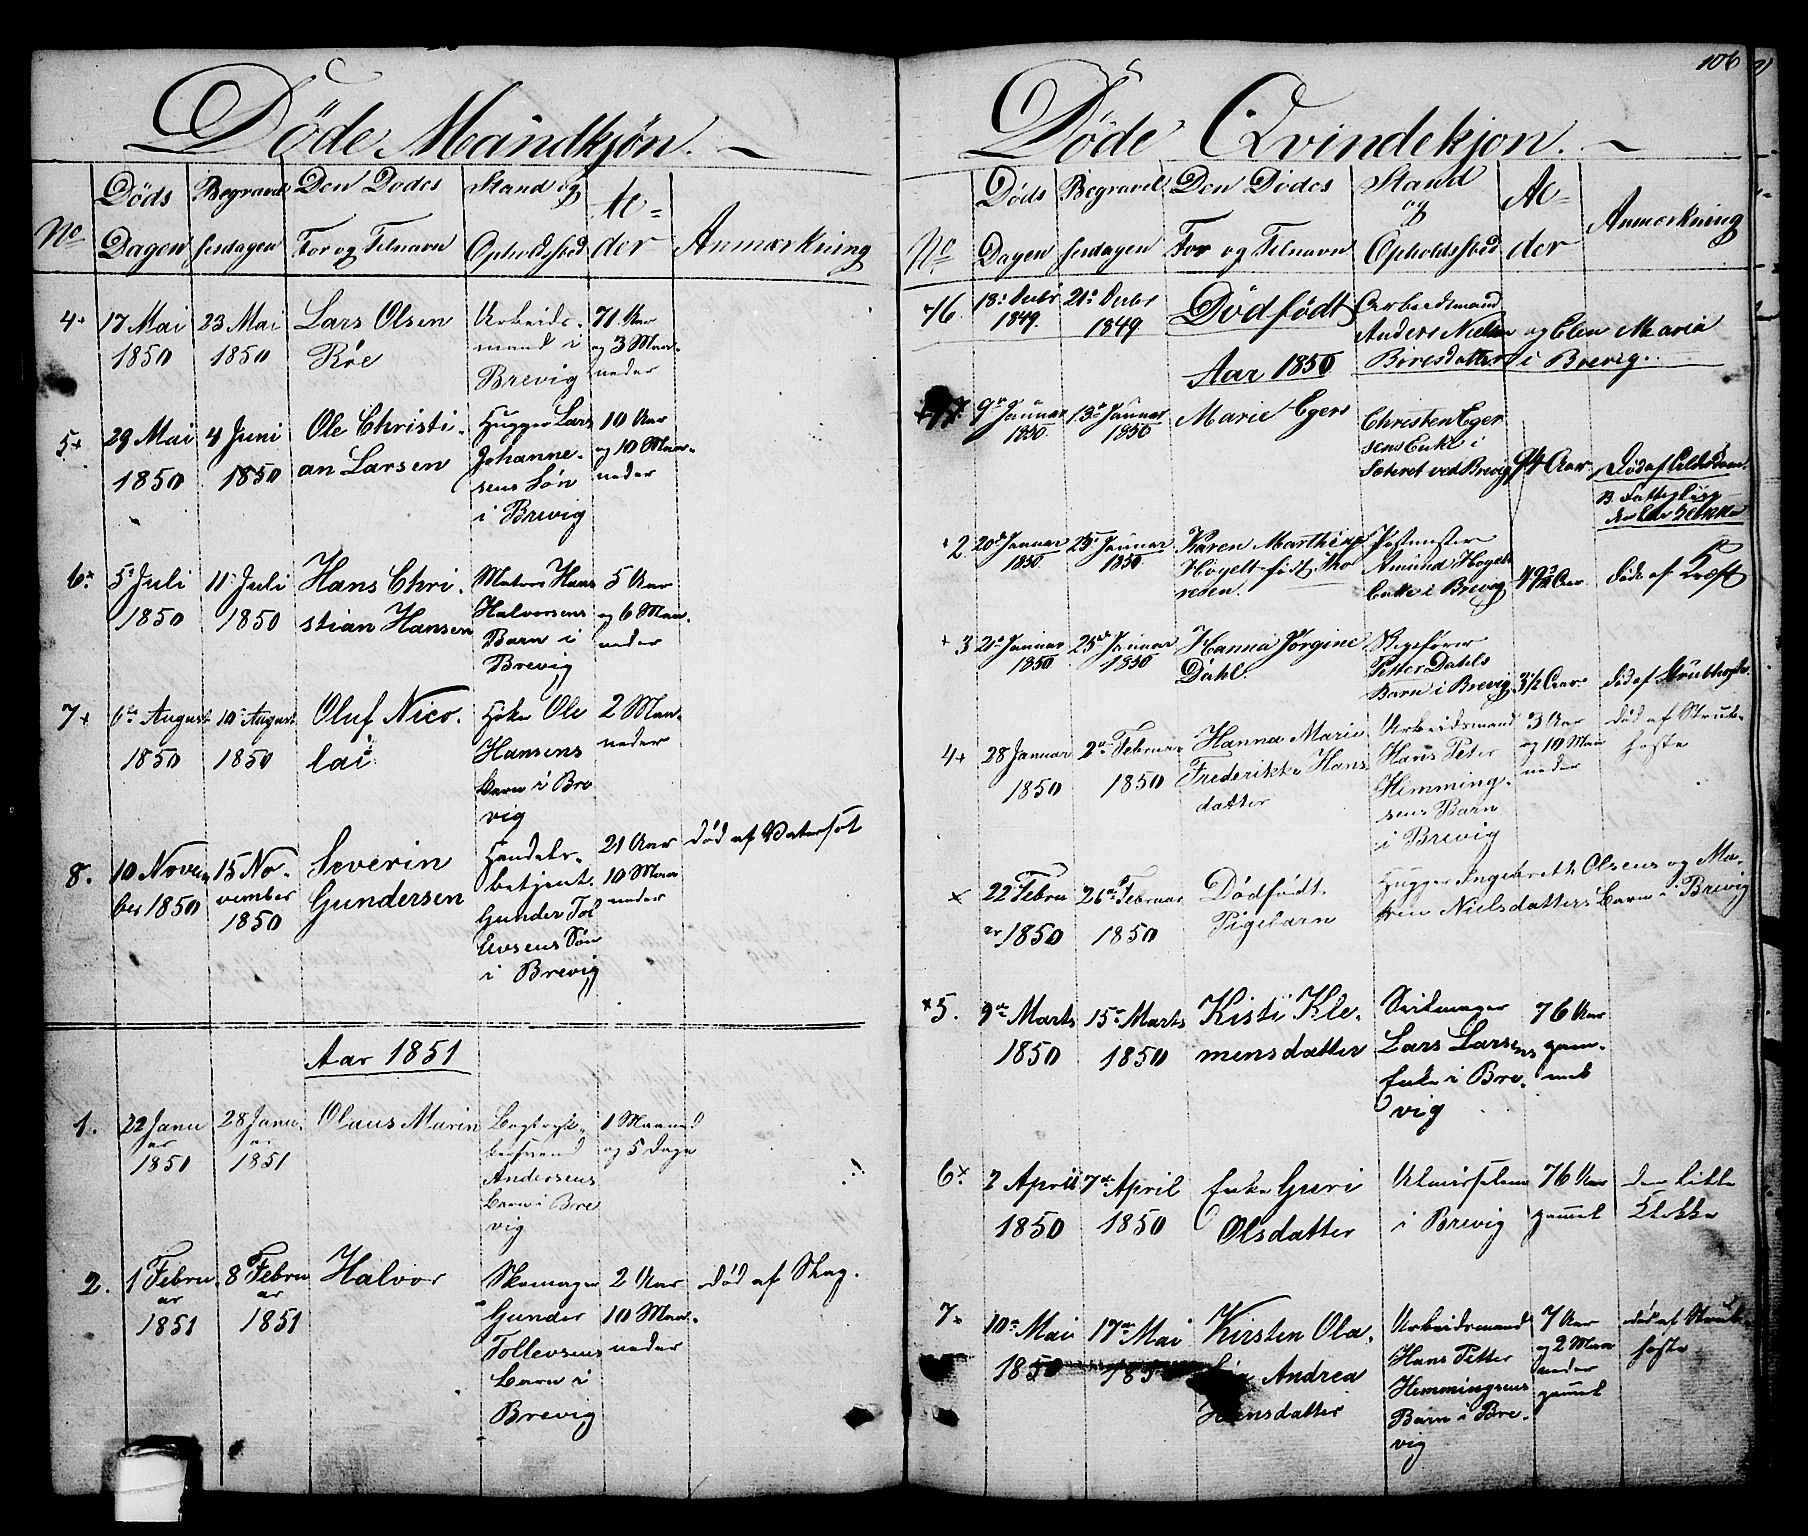 106
Døde Mandkjøn.
No
Døds Dagen
Begravelsesdagen
Den Dødes For og Tilnavn
Stand og Opholdssted
Alder
Anmærkning
4
17 Mai 1850
23 Mai 1850
Lars Olsen Röe
Arbeidsmand i Brevig
71 Aar og 3 Maaneder
5
29 Mai 1850
4 Juni 1850
Ole Christian Larsen
Hugger Lars Johannesens Søn i Brevig
10 Aar og 10 Maaneder
6
5 Juli 1850
11 Juli 1850
Hans Christian Hansen
Matros Hans Halvorsens Barn i Brevig
5 Aar og 6 Maaneder
7
6te August 1850
10 August 1850
Oluf Nicolai
Høker Ole Hansens Barn i Brevig
2 Maaneder
8.
10 November 1850
15 November 1850
Severin Gundersen
Handelsbetjent Gunder Tollevsens Søn i Brevig
21 Aar 10 Maaneder
død af Vatersot
Aar 1851
1.
22 Januar 1851
28 Januar 1851
Olaus Marin
Andersens Barn i Brevig
1 Maaned og 5 Dage
2.
1 Februar 1851
8 Februar 1851
Halvor
Skomager Gunder Tollevsens Barn i Brevig
2 Aar 10 Maaneder
død af Slag.
Døde Qvindekjøn.
No.
Døds Dagen
Begravelsesdagen
Den Dødes For og Tilnavn
Stand og Opholdssted
Alder
Anmærkning
16.
18 Decbr 1849.
21 Decbr 1849
Dødfødt
Arbeidsmand Anders Nielsen og Elen Maria Boresdatter i Brevig.
Aar 1850
9de Januar 1850.
13de Januar 1850
Marie Egers
Christen Egersens Enke i ved Brevig
94 Aar
Død af Alderdom.
2
20de Januar 1850
25 Januar 1850
Karen Marthine Høgelt født Thoresen.
Postmester Amund Høgelts Enke i Brevig
Døde af Kræft
3
21 Januar 1850
25de Januar 1850
Hanna Jørgine Dahl.
Petter Dahls Barn i Brevig
3 1/2 Aar
død af Strubhoste
4
28 Januar 1850
2den Februar 1850
Hanna Marie Frederikke Hansdatter
Arbeidsmand Hans Peter Hemmingsens Barn i Brevig
3 Aar og 10 Maaneder
død af Strubhoste
22 Februar 1850
26de Februar 1850
Dødfødt Pigebarn
Hugger Ingebreth Olsens og Maren Nielsdatters Barn i Brevig
5.
9de Marts 1850
15de Marts 1850
Kisti Klemensdatter
Lars Larsens Enke i Brevig
76 Aar gammel
6
2 April 1850
7de April 1850
Enke Guri Olsdatter
Almisselem i Brevig
76 Aar gammel
den lille Klokke
7
10de Mai 1850
17de Mai 1850
Kirsten Andrea Hansdatter
Arbeidsmand Hans Petter Hemmingsens Barn i Brevig
7 Aar og 2 Maaneder gammel
død af Strubhoste